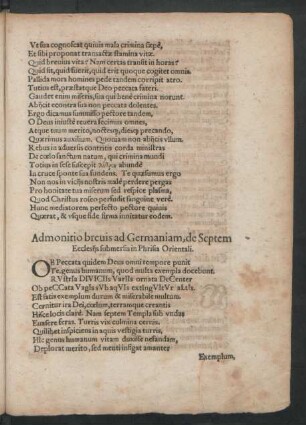 Vt sua cognoscat quiuis mala crimina sępè,
Et sibi proponat transactæ stamina vitæ.
Quid breuius vita? Num certas transit in horas?
Quid sit, quid fuerit, quid erit quoque cogitet omnis.
Pallida mors homines pede tandem corripit atro.
Totius est, præstatque Deo peccata fateri.
Gaudet enim miseris, sua qui benè crimina norunt.
Abijcit contritos sua non peccata dolentes.
Ergo dicamus summisso pectore tandem,
O Deus iniustè reuera fecimus omnes,
Atque tuam meritò, noctesq; diesq; per
Quatrinus auxilium. Quoniam non abijcis vllum.
Rebus in aduersis contritis corda ministras
De cœlo sanctum natum, qui crimina mundi
Totius in sese suscepit abundè
In cruce sponte sua fundens. Te quæsumus ergo
Non nos in vicijs nostris malè perdere pergas
Pro bonitate tua miseram sed respice plasma,
Quod Christus roseo persudit sanguine verè.
Hunc mediatorem perfecto pectore quiuis
Quærat, & vsque fide firma innitatur eodem.
Admonitio breuis ad Germaniam, de Septem
Ecclesijs submersis in Phrisia Orientali.
OB Peccata quidem Deus omni tempore punit
Te, genus humanum, quod multa exempla docebunt.
Ob peCCata
Est satis exemplum durum & miserabile multum.
Cernitur ira Dei, cœlum, terramque creantis
Hisce locis clarè. Nam septem Templa sub vndas
Euasere feras. Turris vix culmina cernes.
Quilibet inspiciens in aquis vestigia turris,
Hic genus humanum vitam duxisse nefandam,
Deplorat meritò, sed mentis insigat amantes
Exemplum,